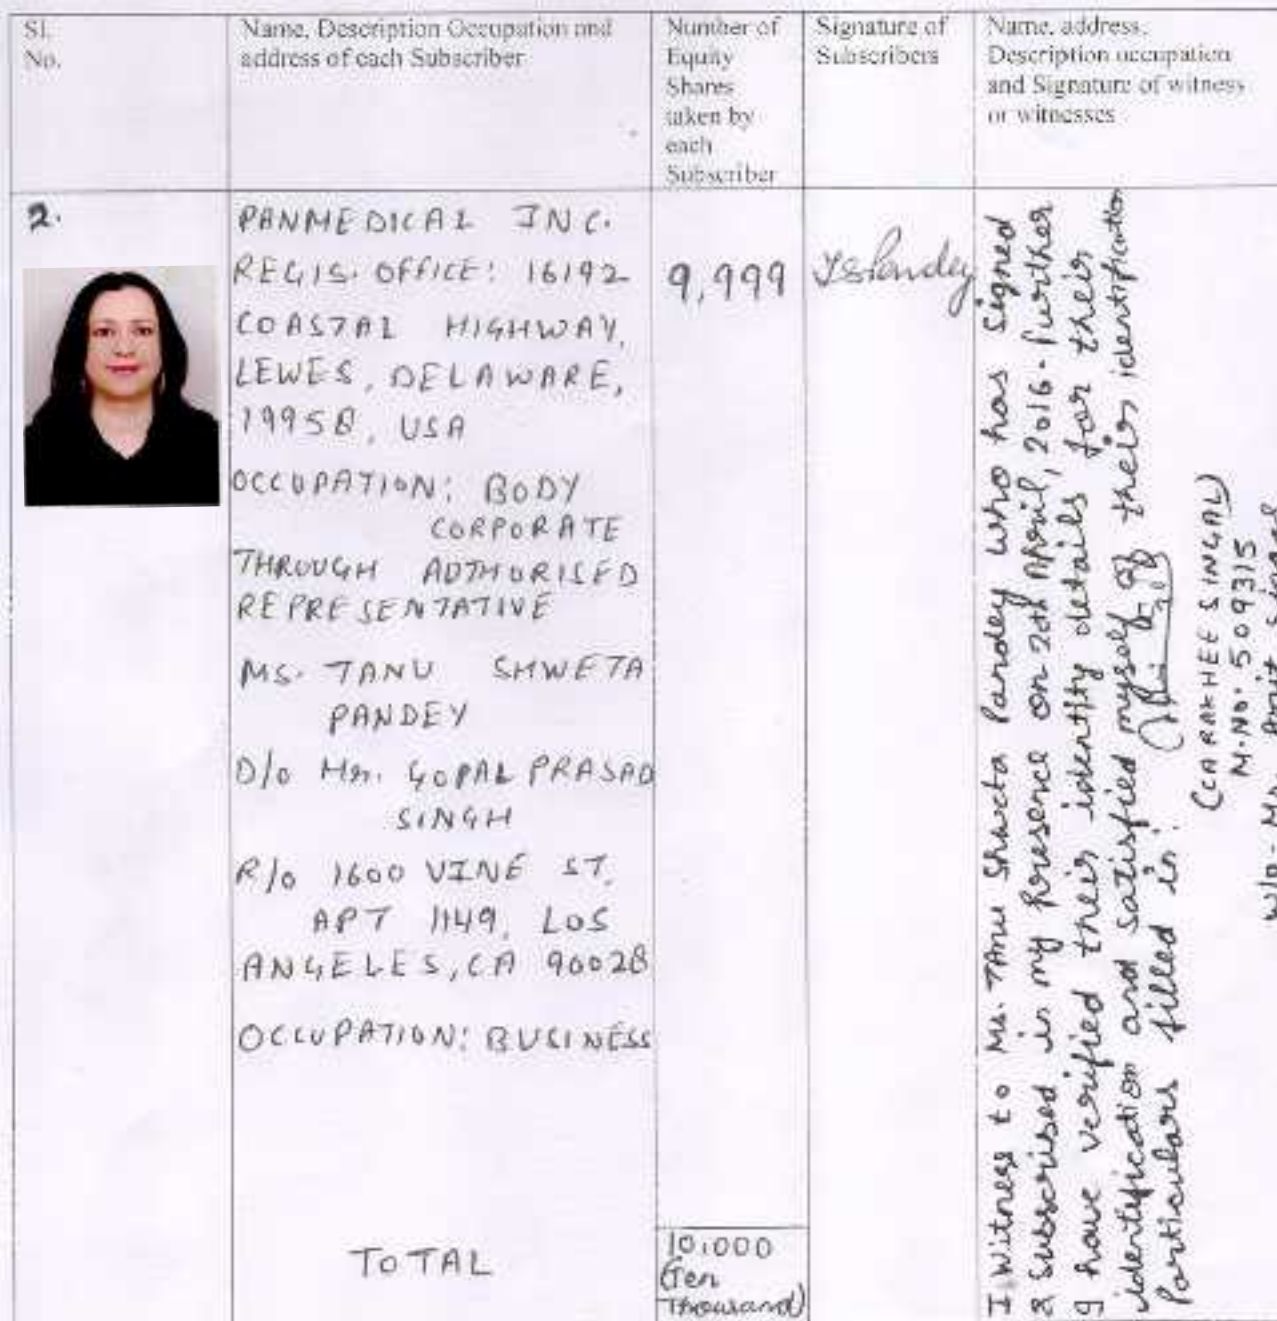 Sl.
No.
Name, Description Occupation and
address of each Subscriber
Number of
Equity
Shares
taken by
each
Subscriber
Signature of
Subscribers
Name, address,
Description occupation
and Signature of witness
or witnesses
2.
PANMEDICAL INC.
REGIS. OFFICE: 16192
COASTAL HIGHWAY,
LEWES, DELAWARE,
19958, USA
OCCUPATION: BODY
CORPORATE
THROUGH AUTHORISED
REPRESENTATIVE
MS. TANU SHWETA
PANDEY
D/o Mr. GOPAL PRASAD
SINGH
R/o 1600 VINE ST.
APT 1149, LOS
ANGELES, CA 90028
OCCUPATION: BUSINESS
9,999
TSPandey
TOTAL
10,000
(Ten
Thousand)
I Witness to Ms. Tanu Shweta Pandey who has signed
& Subscribed in my presence on 20th April, 2016. Further
I have verified their identity details for their
identification and satisfied myself of their identification
Particulars filled in.
(CA RAKHEE SINGAL)
M.NO. 509315
W/o - Mr. Amit Singal